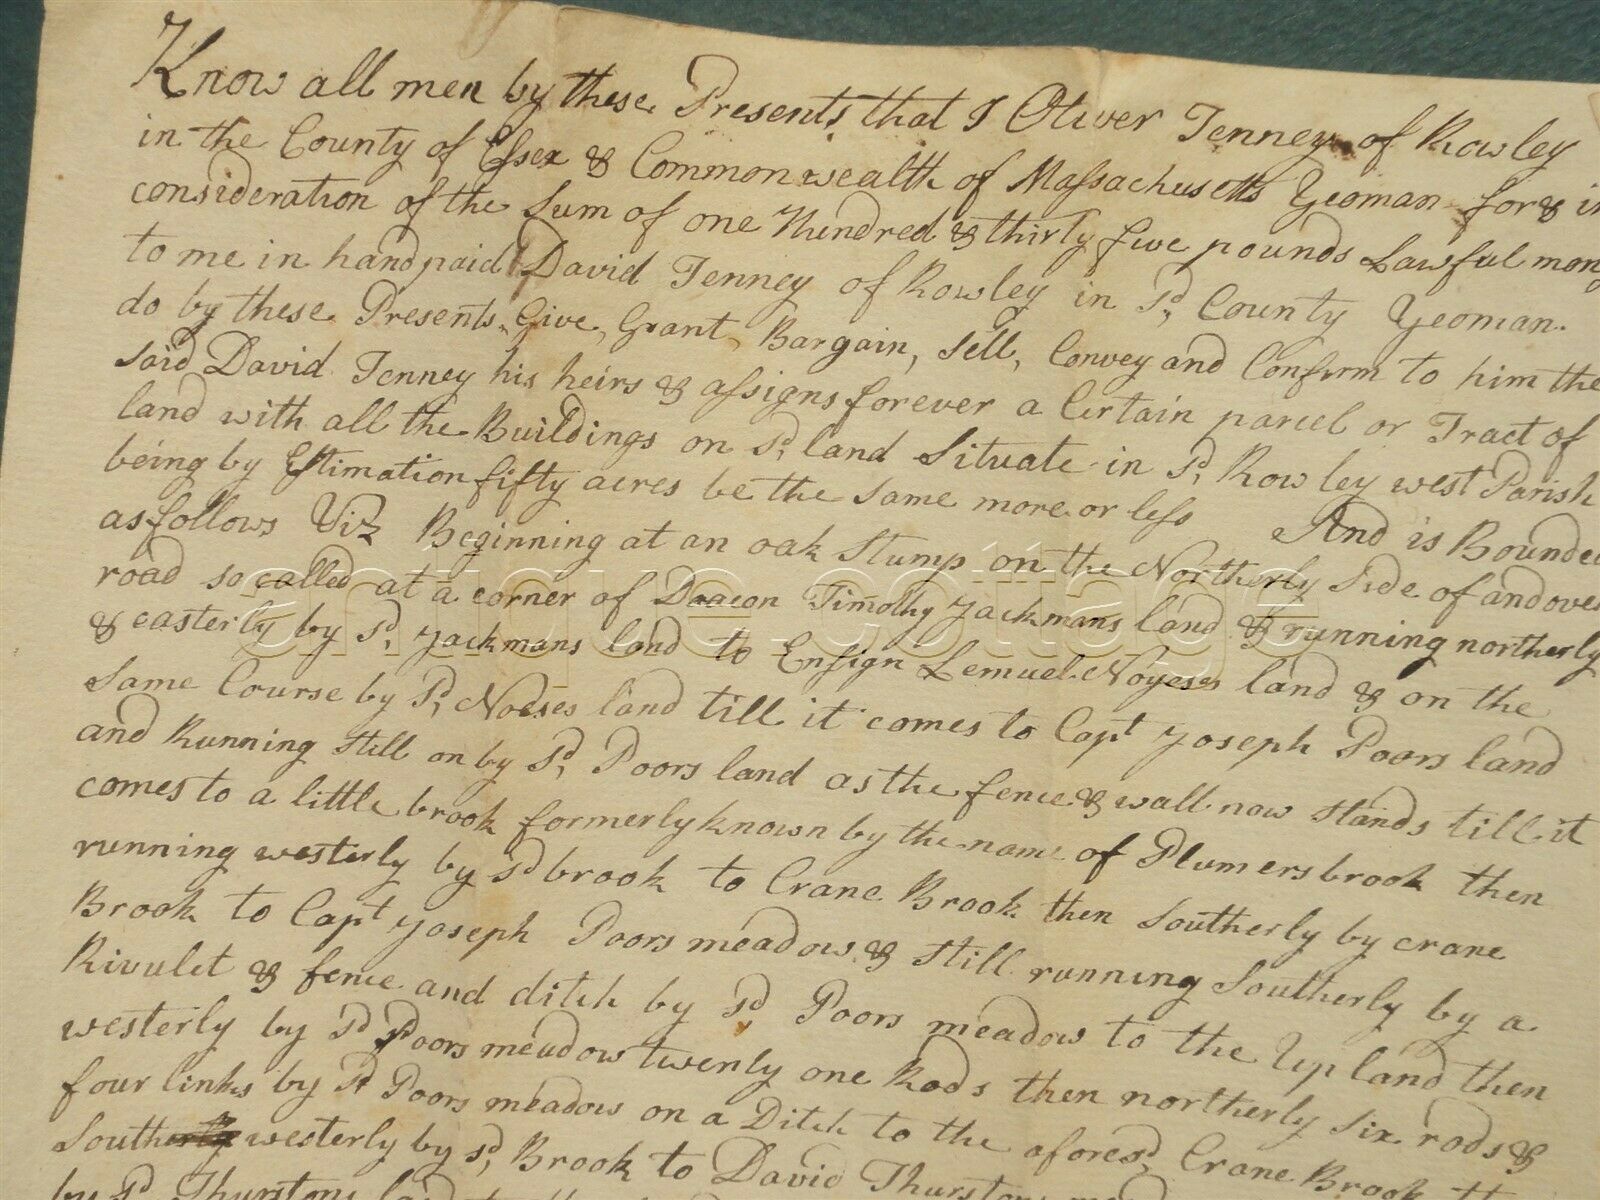 Know all men by these Presents that I Oliver Tenney of Rowley
in the County of Essex & Commonwealth of Massachusetts Yeoman for & in
consideration of the Sum of one Hundred & thirty five pounds Lawful mony
to me in hand paid David Tenney of Rowley in Sd, County Yeoman.
do by these Presents, Give, Grant, Bargain, Sell, Convey and Confirm to him the
said David Tenney his heirs & assigns forever a Certain parcel or Tract of
land with all the Buildings on Sd, land Situate in Sd, Rowley west Parish
being by Estimation fifty acres be the Same more or less And is Bounded
as follows Viz Beginning at an oak Stump on the Northerly Side of andover
road so called at a corner of Deacon Timothy Jackmans land & running northerly
& easterly by Sd, Jackmans land to Ensign Lemuel Noyeses land & on the
Same Course by Sd, Noeses land till it comes to Capt Joseph Poors land
and Running Still on by Sd, Poors land as the fence & wall now Stands till it
comes to a little brook formerly known by the name of Plumers brook then
running westerly by Sd brook to Crane Brook then Southerly by crane
Brook to Capt Joseph Poors meadow & Still running Southerly by a
Rivulet & fence and ditch by Sd, Poors meadow to the Upland then
westerly by Sd Poors meadow twenty one Rods then northerly Six rods &
four links by Sd Poors meadow on a Ditch to the aforesd, Crane Brook
Southerly westerly by Sd, Brook to David Thurstons
by Sd Thurstons
antique cottage